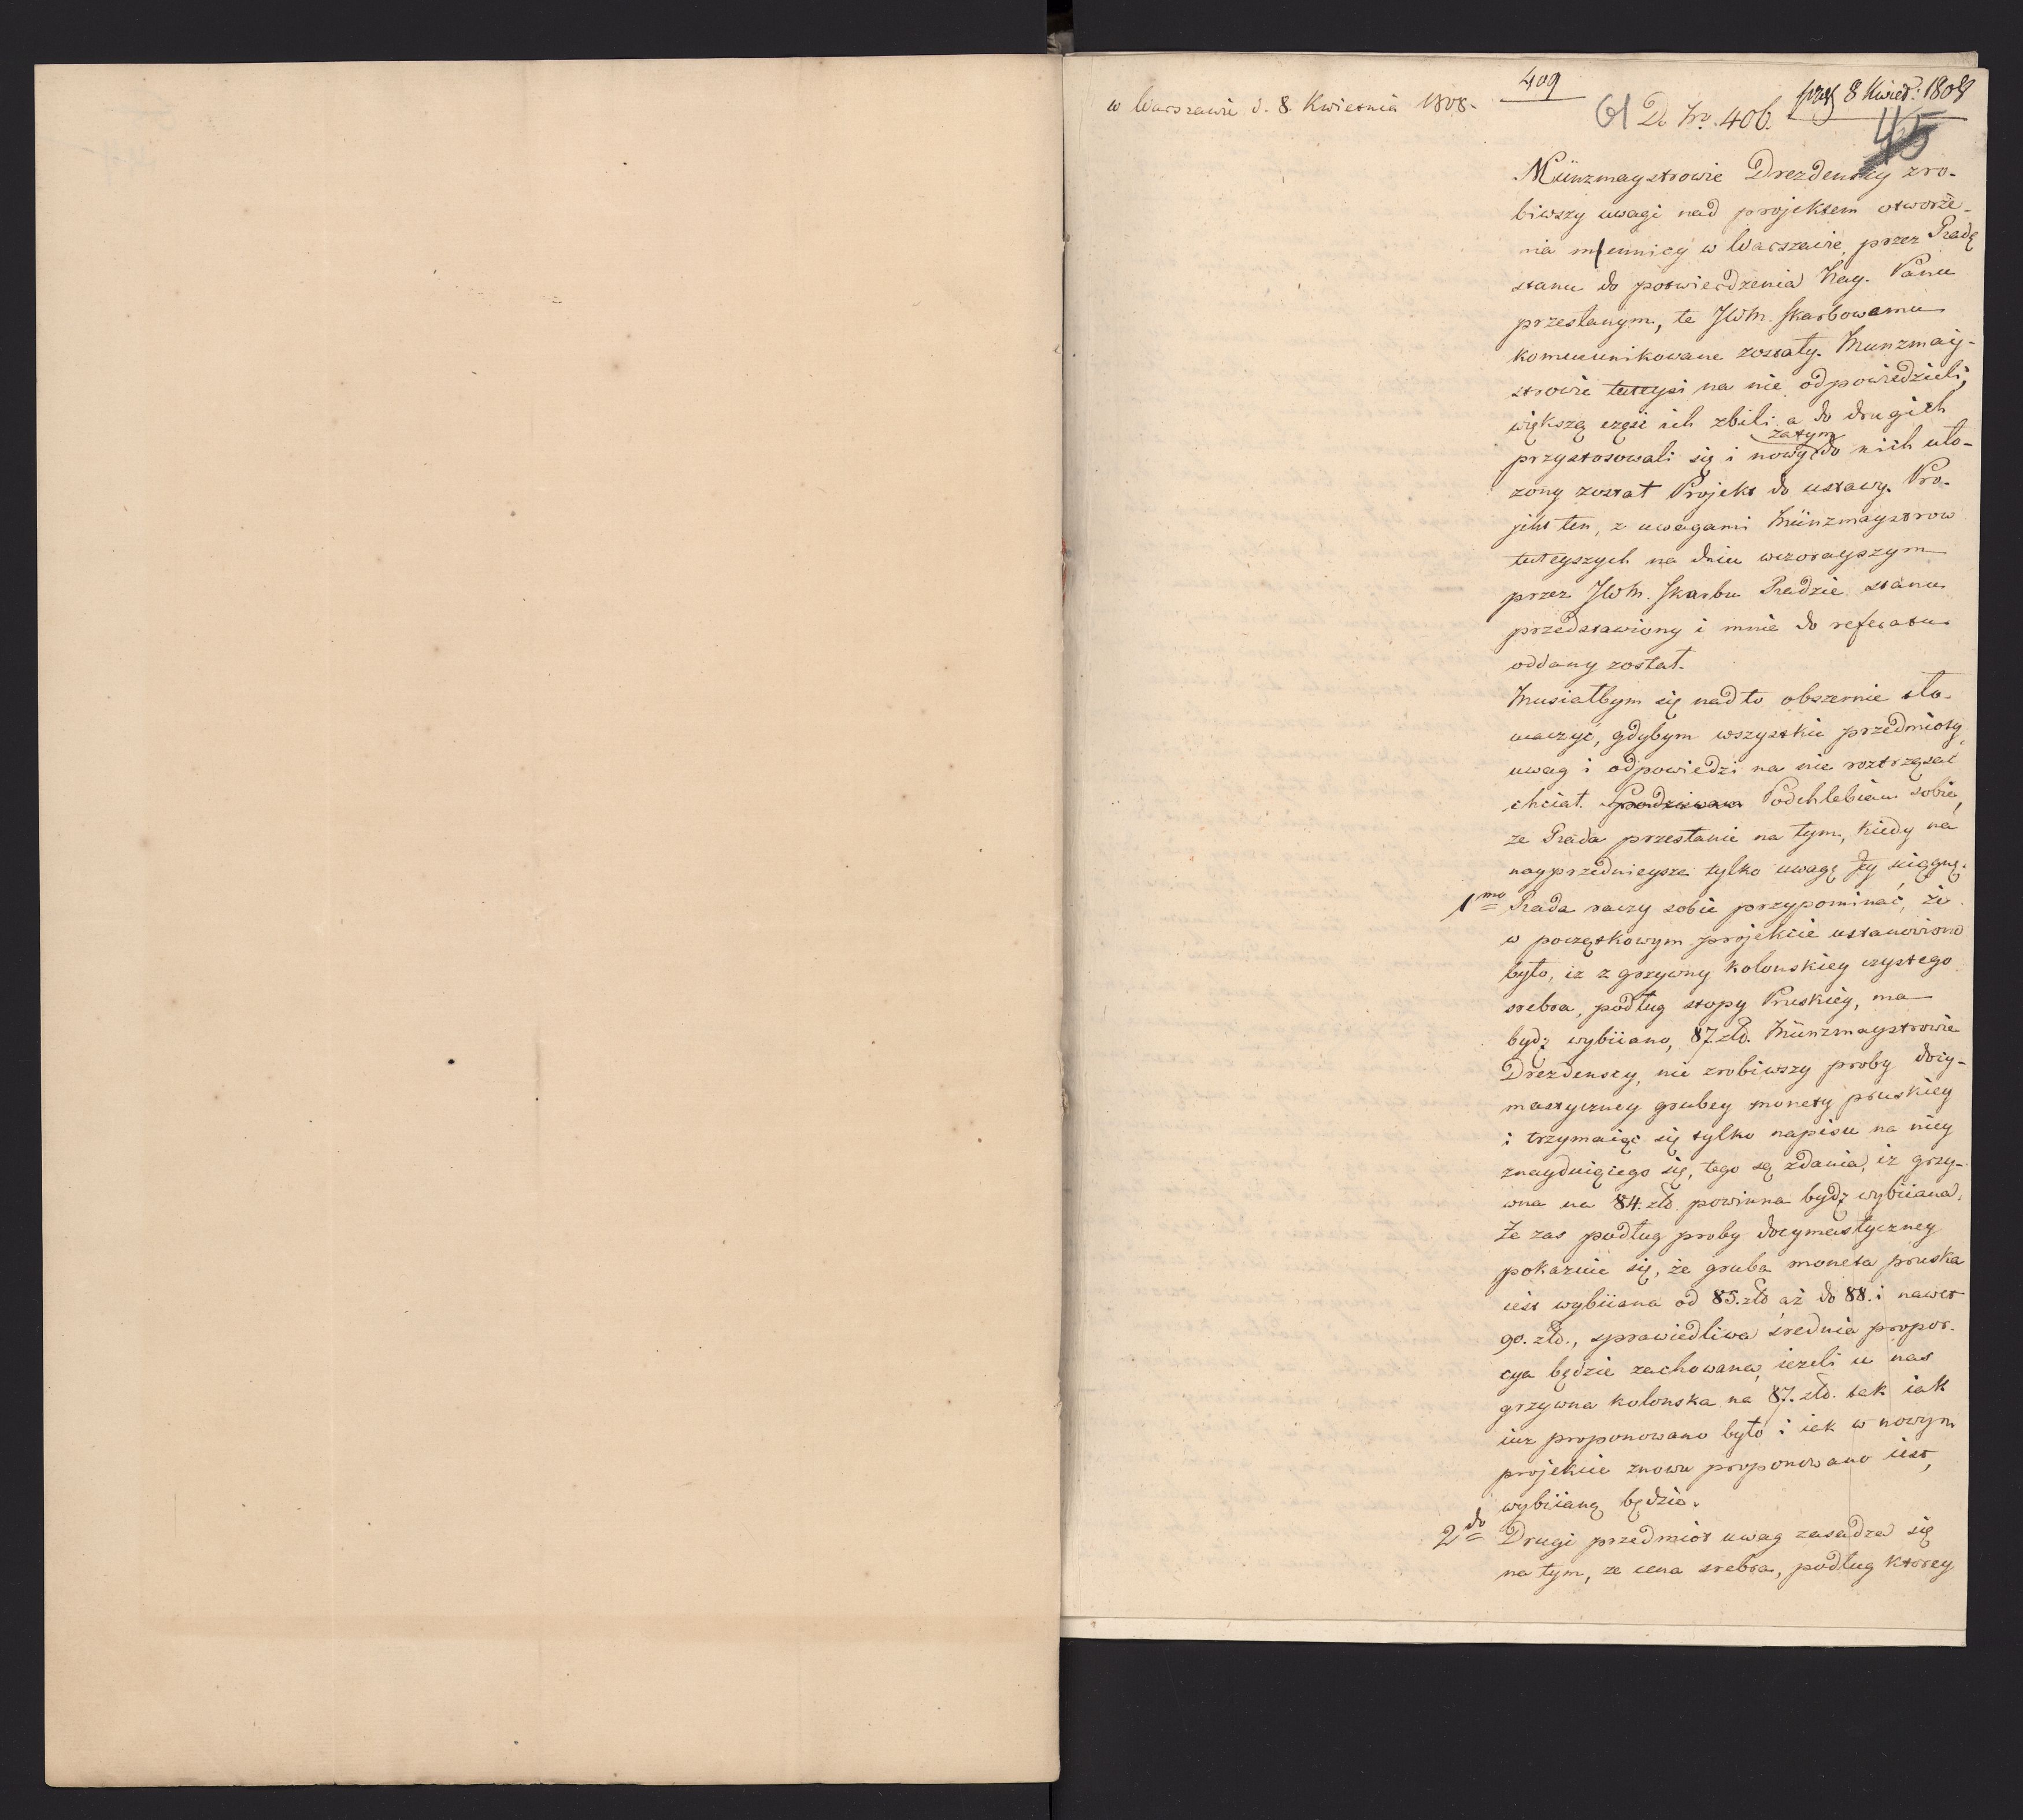 409
w Warszawie d. 8. Kwietnia 1808.
61 Do Nro. 406.
8 Kwiet: 1808
45
Münzmaystrowie Drezdenscy zro-
biwszy uwagi nad projektem otworze-
nia mennicy w Warszawie, przez Radę
stanu do potwierdzenia Nay. Panu
przesłanym, te JWM. skarbowemu
kommunikowane zostały. Munzmay-
strowie tuteysi na nie odpowiedzieli,
większą częśc ich zbili a do drugich
przystosowali się i nowy zatym do nich uło-
zony został Projekt do ustawy. Pro-
jekt ten, z uwagami Münzmaystrow
tuteyszych na dniu wczorayszym
przez JWM. Skarbu Radzie stanu
przedstawiony i mnie do referatu
oddany został.
Musiałbym się nadto obszernie tło-
maczyć, gdybym wszystkie przedmioty
uwag i odpowiedzi na nie roztrząsać
chciał. Podchlebiam sobie,
ze Rada przestanie na tym, kiedy na
nayprzednieysze tylko uwagę Jey sciągnę.
1mo Rada raczy sobie przypominać, że
w początkowym projekcie ustanowiono
było, iz z grzywny kolonskiey czystego
srebra, podług stopy Pruskiey, ma
bydz wybiiano, 87. złó. Münzmaystrowie
Drezdenscy, nie zrobiwszy proby docy-
mastyczney grubey monety pruskiey
i trzymaiąc się tylko napisu na niey
znayduiącego się, tego są zdania, iz grzy-
wna na 84. zło. powinna bydz wybiiana.
Ze zas podług proby docymastyczney
pokazuie się, że gruba moneta pruska
iest wybiiana od 85. zło aż do 88. i nawet
90. zło., sprawiedliwa średnia propor-
cya będzie zachowana, iezeli u nas
grzywna kolonska na 87. zło. tak iak
iuz proponowano było i iak w nowym
projekcie znowu proponowano iest,
wybiianą będzie.
2do Drugi przedmiot uwag zasadza się
na tym, ze cena srebra, podług ktorey